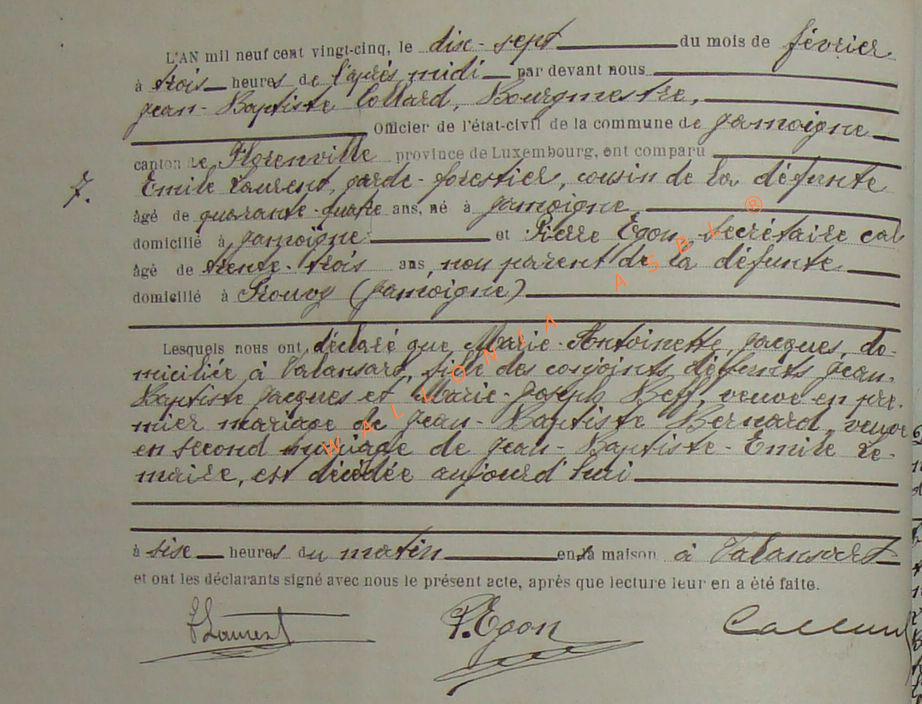 L'AN mil neuf cent vingt-cinq, le dix-sept du mois de février
à trois heures de l'après midi par devant nous
Jean-Baptiste Collard, Bourgmestre,
Officier de l'état-civil de la commune de Jamoigne
canton de Florenville province de Luxembourg, ont comparu
7. Emile Laurent, garde-forestier, cousin de la défunte
âgé de quarante-quatre ans, né à Jamoigne
domicilié à Jamoigne et Pierre Egon, Secrétaire cal
âgé de trente-trois ans, non parent de la défunte
domicilié à Prouvy (Jamoigne)
Lesquels nous ont déclaré que Marie-Antoinette Jacques, do-
miciliée à Valansart, fille des conjoints défunts Jean-
Baptiste Jacques et Marie-Joseph Neff, veuve en pre-
mier mariage de Jean-Baptiste Bernard, veuve
en second mariage de Jean-Baptiste-Emile Le-
maire, est décédée aujourd'hui
à six heures du matin en sa maison à Valansart
et ont les déclarants signé avec nous le présent acte, après que lecture leur en a été faite.
E Laurent P. Egon Collard
WALLONIA ASBL ®